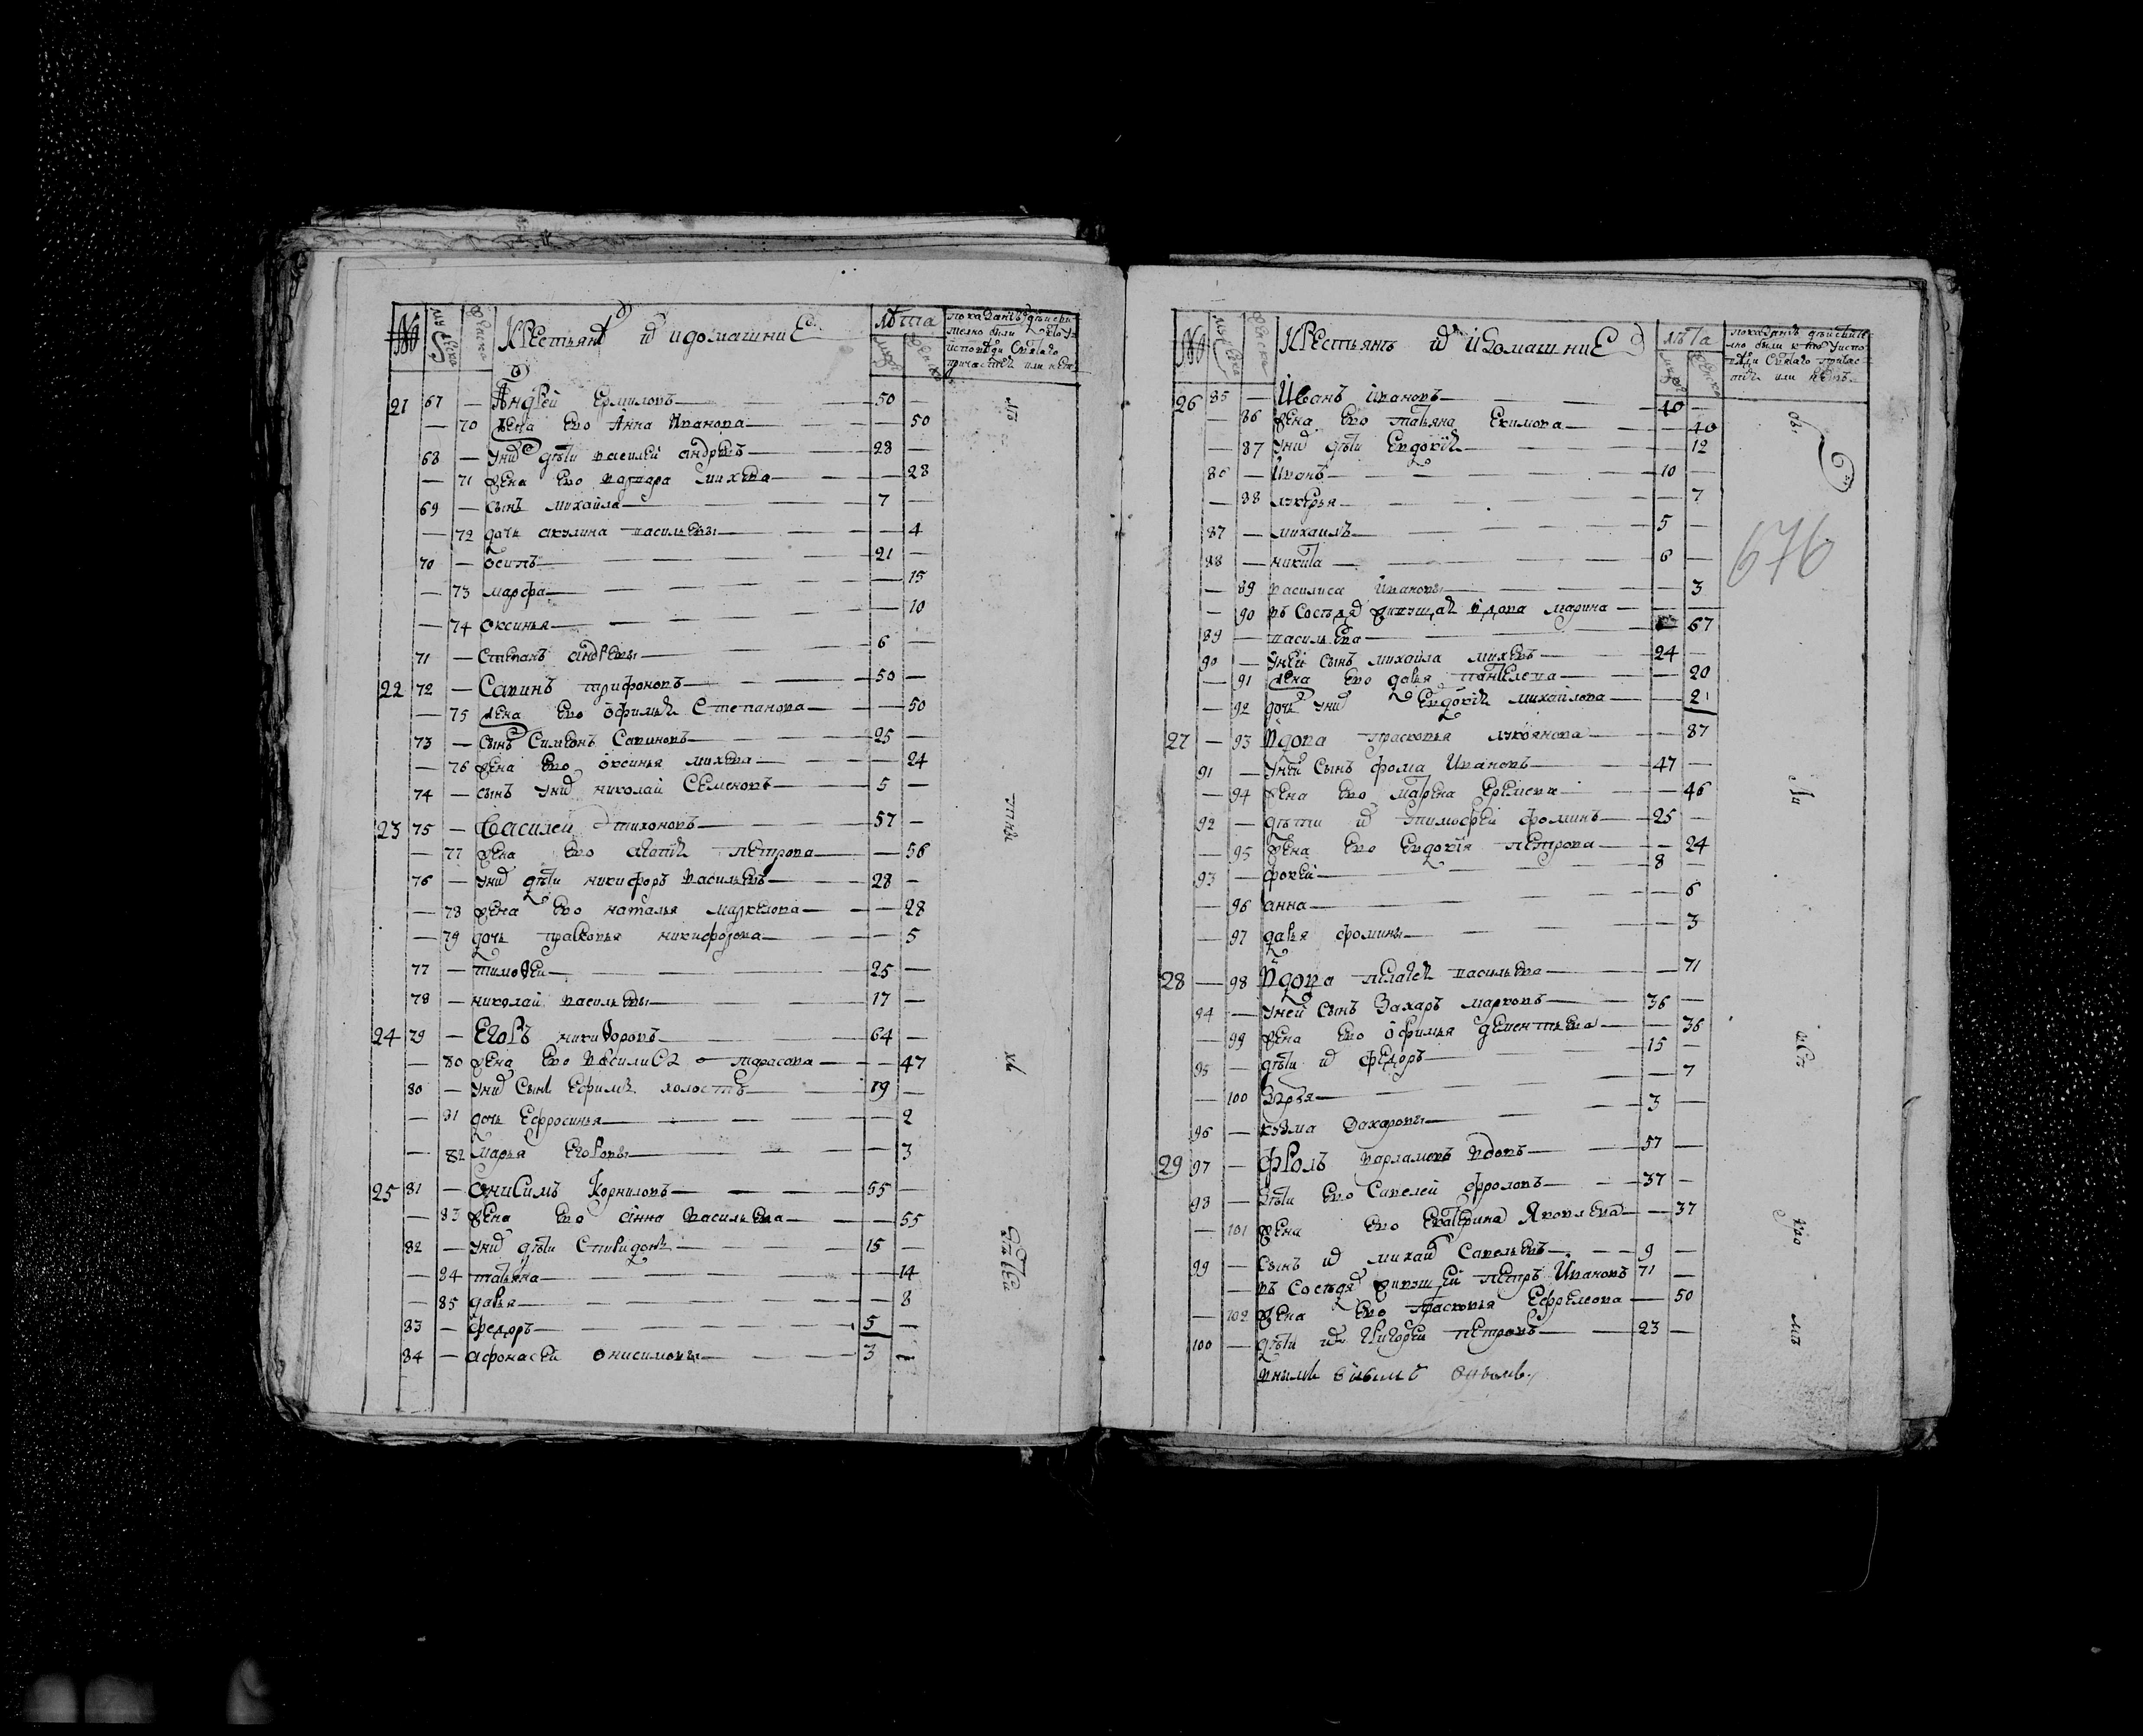 № мужеска женска Крестьянѣ и ихъ домашние лѣта
мужеска женска
показанъ дѣйстви
телно были кто у
исповѣди святаго
причастия или нетъ
21 67 — Андрей Ермиловъ — 50 —
— 70 жена ево Анна Иванова — 50
68 — у них дѣти василей андреевъ — 28 —
— 71 жена ево варвара михеева — 28
69 — сынъ михайла — 7 —
— 72 дочь акулина васильевы — 4
70 — осипъ — 21 —
— 73 марфа — 15
— 74 оксинья — 10
71 — степанъ андреевы — 6 —
22 72 — Савинъ трифоновъ — 50 —
— 75 жена ево офимья степанова — 50
73 — сынъ Симеонъ Савиновъ — 25 —
— 76 жена ево оксинья михеева — 24
74 — сынъ у них николай Семеновъ — 5 —
23 75 — Василей тихоновъ — 57 —
— 77 жена ево агапия петрова — 56
76 — у них дѣти никифоръ васильевъ — 28 —
— 78 жена ево наталья маркелова — 28
— 79 дочь прасковья никифорова — 5
77 — тимоѳей — 25 —
78 — николай васильевы — 17 —
24 79 — Егоръ никиѳоровъ — 64 —
— 80 жена ево василиса тарасова — 47
80 — у них сынъ Ефимъ холостъ — 19 —
— 81 дочь Ефросинья — 2
— 82 марья Егоровы — 3
25 81 — Онисимъ Корниловъ — 55 —
— 83 жена ево анна васильева — 55
82 — у них дѣти Спиридонъ — 15 —
— 84 татьяна — 14
— 85 дарья — 8
83 — федоръ — 5 —
84 — афонасей онисимовы — 3 —
№ мужеска женска Крестьянъ и ихъ домашние лѣта
мужеска женска
показанъ дѣйствите
лно были кто у испо
вѣди святаго причас
тия или нетъ
676
26 85 — Иванъ ивановъ — 40 —
— 86 жена ево татьяна Екимова — 40
— 87 у них дѣти Евдокия — 12
86 — иванъ — 10 —
— 88 лукерья — 7
87 — михаилъ — 5 —
88 — никита — 6 —
— 89 василиса ивановы — 3
— 90 въ соседях живущая вдова марина —
89 — васильева — 67
90 — у ней сынъ михайла михеевъ — 24 —
— 91 жена ево дарья пантелеева — 20
— 92 дочь у них Евдокия михайлова — 2
27 — 93 Вдова прасковья лукоянова — 87
91 — у ней сынъ фома Ивановъ — 47 —
— 94 жена ево матрена Еремеева — 46
92 — дѣти их тимофей фоминъ — 25 —
— 95 жена ево Евдокия петрова — 24
93 — фокей — 8 —
— 96 анна — 6
— 97 дарья фомины — 3
28 — 98 Вдова пелагея васильева — 71
94 — у ней сынъ Захаръ марковъ — 36 —
— 99 жена ево офимья дементьева — 36
95 — дѣти их федоръ — 15 —
— 100 дарья — 7
96 — козма захаровы — 3 —
29 97 — Фролъ варламовъ вдовъ — 57 —
98 — дѣти ево Савелей фроловъ — 37 —
— 101 жена ево Екатерина Яковлева — 37
99 — сынъ их михаи Савельевъ — 9 —
— въ соседях живущей петръ Ивановъ 71 —
— 102 жена ево прасковья Ефремова — 50
100 — дѣти их Григорей петровъ — 23 —